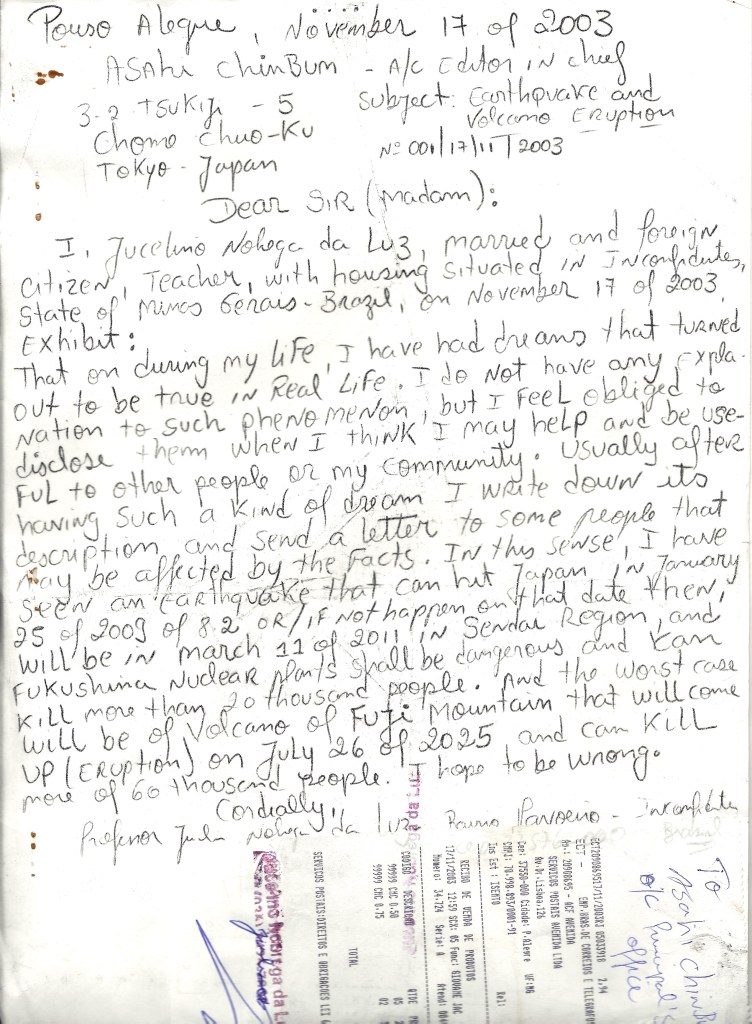 Pouso Alegre, November 17 of 2003
ASAhi ChinBum - A/C Editor in chief
3-2 TSUKiji - 5 Subject: Earthquake and
Chome Chuo-Ku Volcano Eruption
Tokyo - Japan Nº 001/17/11/2003
Dear SiR (madam):
I, Jucelino Nobrega da Luz, married and foreign
citizen, Teacher, with housing situated in Inconfidentes,
State of Minas Gerais - Brazil, on November 17 of 2003,
Exhibit:
That on during my life, I have had dreams that turned
out to be true in Real Life. I do not have any expla-
nation to such phenomenon, but I feel obliged to
disclose them when I think I may help and be use-
ful to other people or my community. Usually after
having such a kind of dream I write down its
description and send a letter to some people that
may be affected by the facts. In this sense, I have
seen an earthquake that can hit Japan in January
25 of 2009 of 8.2 OR/IF not happen on that date then,
will be in march 11 of 2011 in Sendai Region, and
Fukushima Nuclear plants shall be dangerous and kan
kill more than 20 thousand people. And the worst case
will be of Volcano of Fuji Mountain that will come
up (Eruption) on July 26 of 2025 and can kill
more of 60 thousand people. I hope to be wrong.
Cordially,
Professor Nobrega da Luz - Inconfidentes
To
Asahi ChinB
A/C Principal's
office
ECT -
SERVICOS POSTAIS AVENIDA LTDA
Av.Dr.Lisboa,126
Cep: 37550-000 Cidade: P.Alegre UF:MG
Ins Est : ISENTO
RECIBO DE VENDA DE PRODUTOS
17/11/2003 12:59
Numero: 34.724 Serie: A
99999 CMC 0.50
99999 CMC 0.75
TOTAL
SERVICOS POSTAIS:DIREITOS E OBRIGACOES LEI